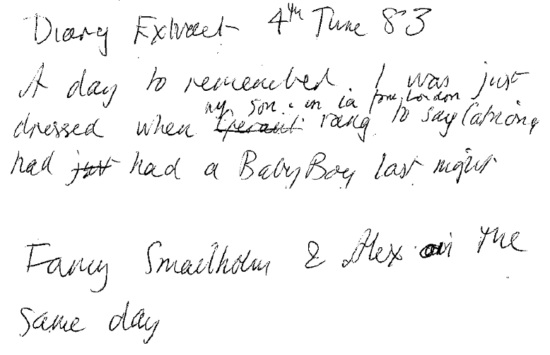 Diary Extract 4th June 83
A day to remember. I was just
my son in la from London
dressed when Gerant rang to say Catriona
had just had a Baby Boy last night
Fancy Smailholm & Alex on the
same day